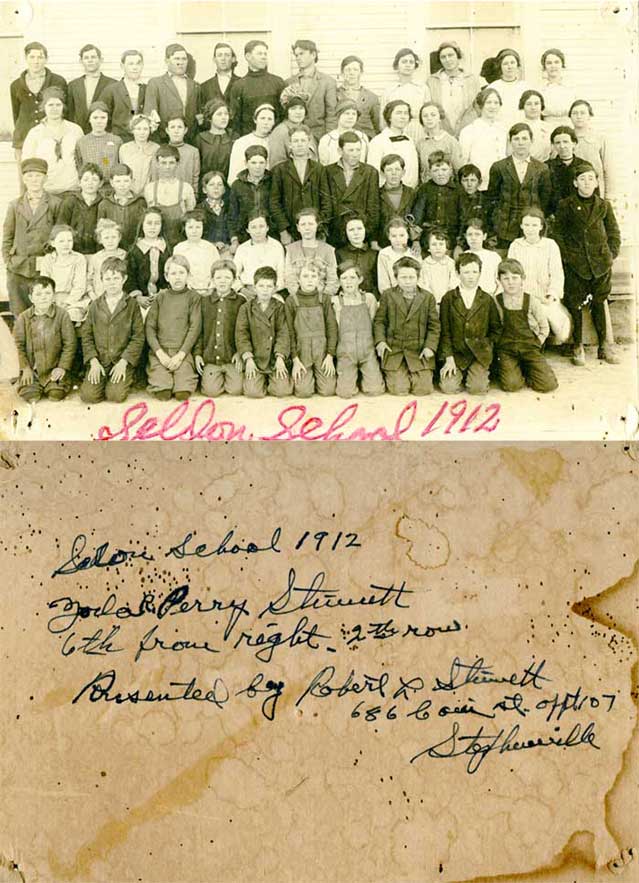 Seldon School 1912
Seldon School 1912
Perry Stuwett
6th from right - 2th row
Presented by Robert L Stuwett
686 St. appt 107
Stephenville